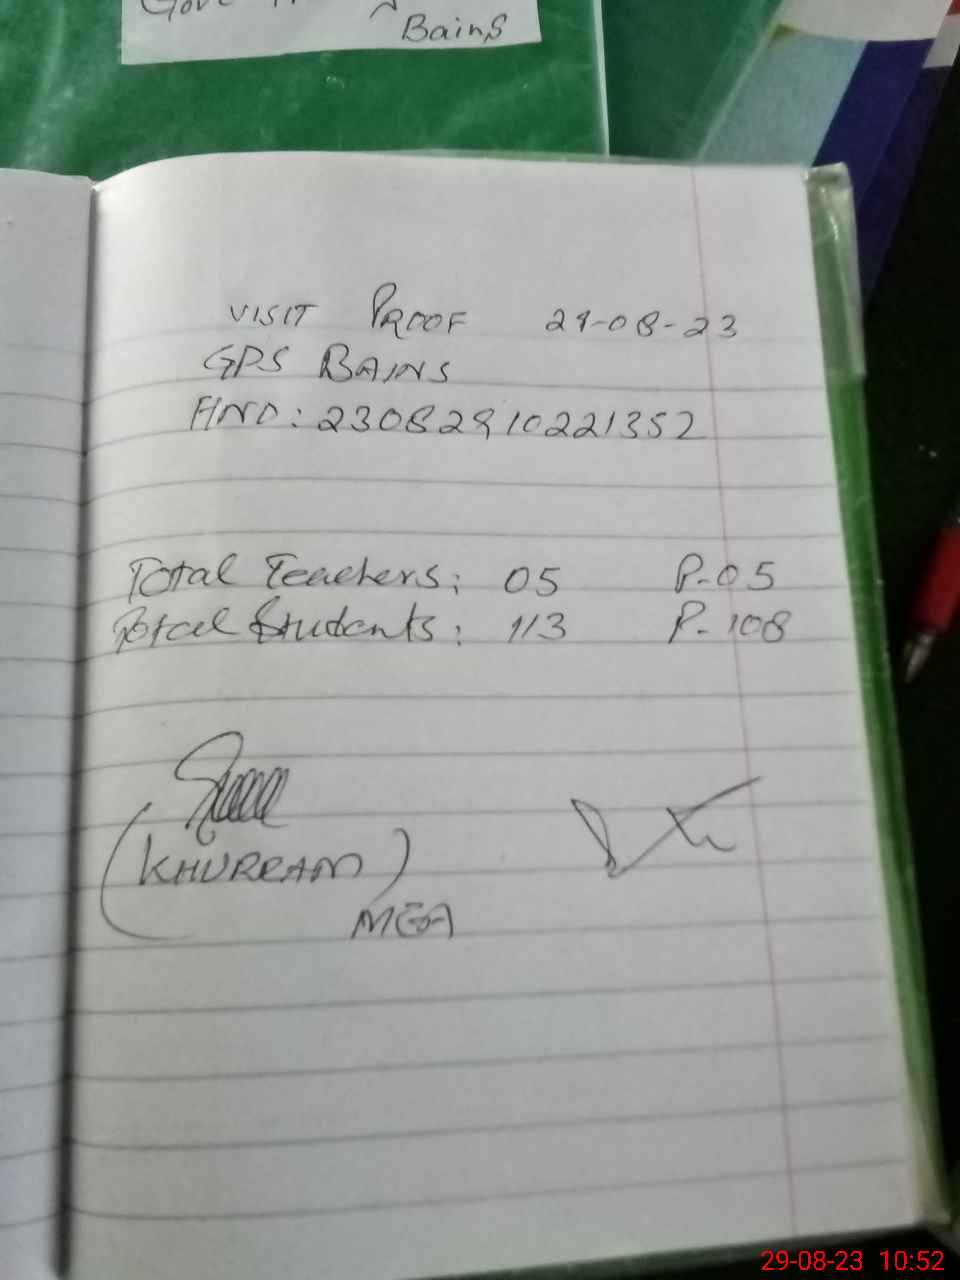 Bains
VISIT PROOF 29-08-23
GPS BAINS
HND: 23082910221352
Total Teachers: 05 P-05
Total Students: 113 P-108
(KHURRAM)
MEA
29-08-23 10:52